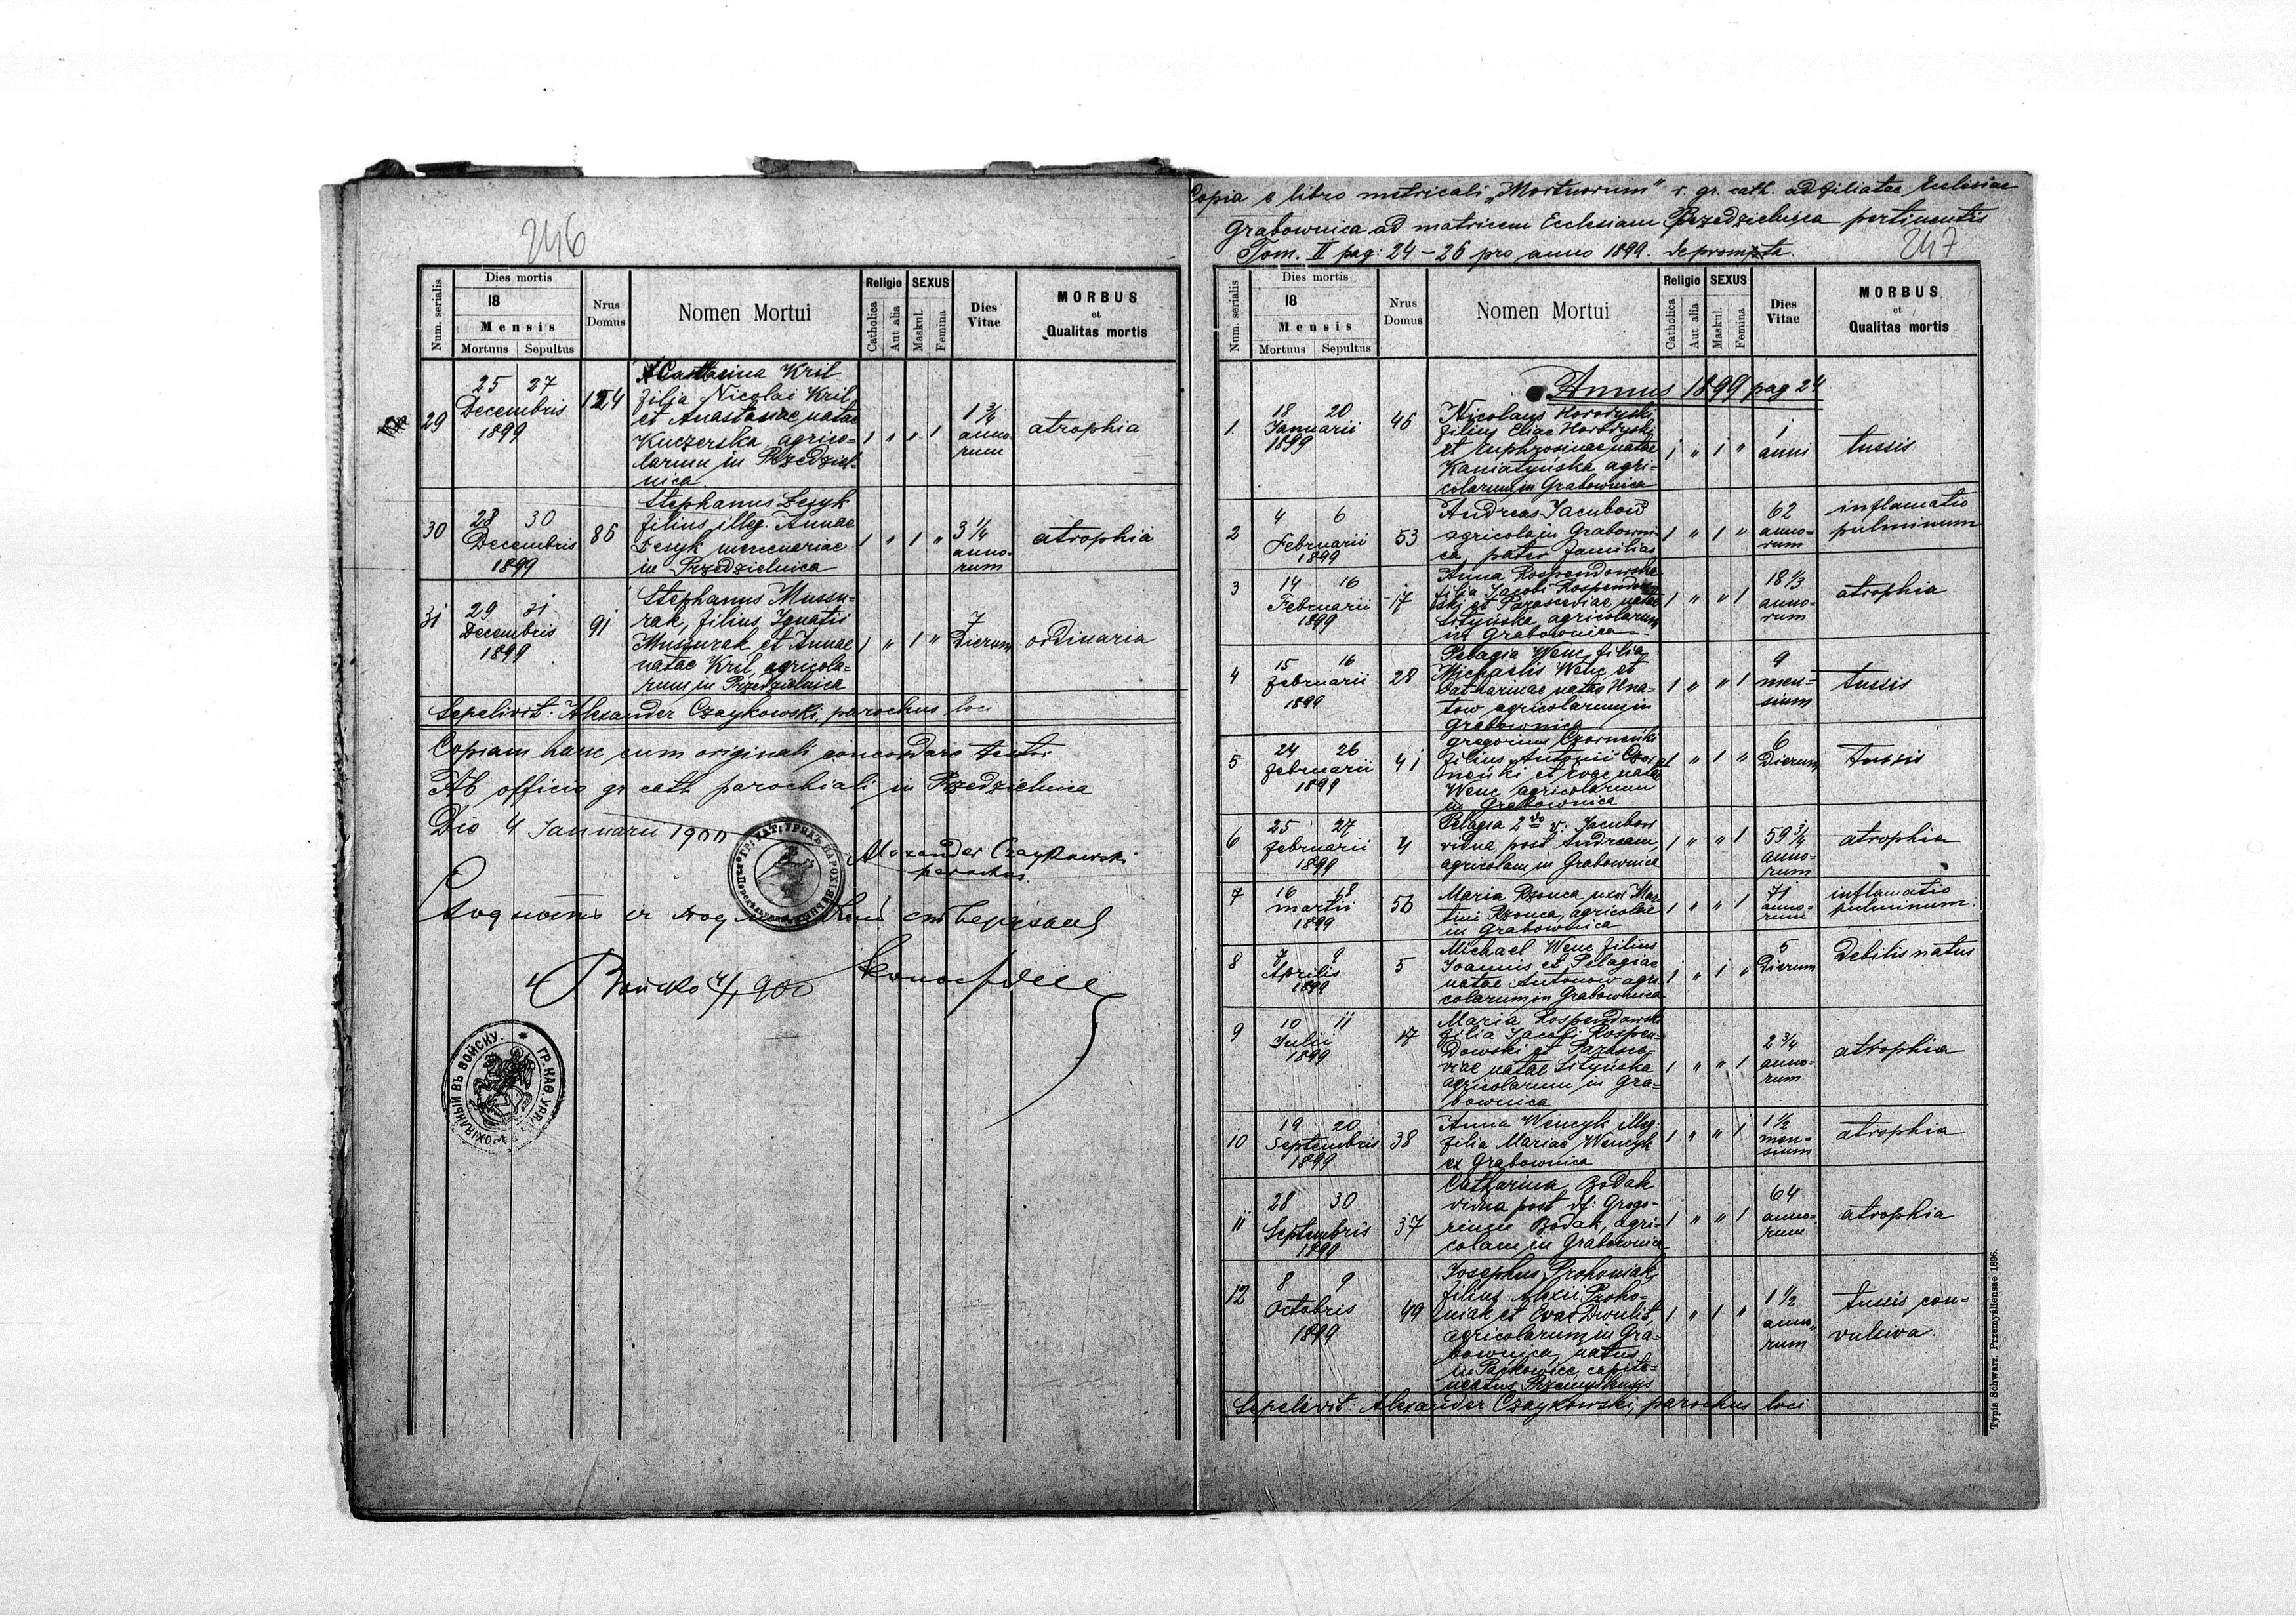 246
Num. serialis
Dies mortis
18
Mensis
Mortuus Sepultus
Nrus Domus
Nomen Mortui
Religio
Catholica
Aut alia
SEXUS
Maskul.
Femina
Dies Vitae
MORBUS
et
Qualitas mortis
29
25 27
Decembris
1899
124
Catharina Kril
filia Nicolai Kril
et Anastasiae natae
Kuczerska, agrico-
larum in Przedziel-
nica
1 " " 1
1 3/4
anno-
rum
atrophia
30
28 30
Decembris
1899
86
Stephanus Lesyk
filius illeg. Annae
Lesyk mercenariae
in Przedzielnica
1 " 1 "
3 1/4
anno-
rum
atrophia
31
29 31
Decembris
1899
91
Stephanus Muszu-
rak, filius Ignatii
Muszurak et Annae
natae Kril, agricola-
rum in Przedzielnica
1 " 1 "
7
Dierum
ordinaria
Sepelivit: Alexander Czaykowski, parochus loci
Copiam hanc cum originali concordare testor
Ab officio gr. cath. parochiali in Przedzielnica
Die 4 Januarii 1900
Alexander Czaykowski
parochus.
4/1 900
ГР. КАѲ. УРЯДЪ ПАРОХІЯЛЬНЫЙ ВЪ ВОЙСКУ.
Copia e libro metricali „Mortuorum" r. gr. cath. adfiliatae Ecclesiae
Grabownica ad matricem Ecclesiam Przedzielnica pertinentis
Tom. II pag: 24 – 26 pro anno 1899. deprompta.
247
Num. serialis
Dies mortis
18
Mensis
Mortuus Sepultus
Nrus Domus
Nomen Mortui
Religio
Catholica
Aut alia
SEXUS
Maskul.
Femina
Dies Vitae
MORBUS
et
Qualitas mortis
Annus 1899 pag 24
1.
18 20
Januarii
1899
46
Nicolaus Horodyski
filius Eliae Horodyski
et Euphrosinae natae
Kaniatyńska, agri-
colarum in Grabownica
1 " 1 "
1
anni
tussis
2
4 6
Februarii
1899
53
Andreas Jacubow
agricola in Grabowni-
ca, pater familias
1 " 1 "
62
anno-
rum
inflamatio
pulminum
3
14 16
Februarii
1899
17
Anna Rospendowska
filia Jacobi Rospendow-
ski et Parasceviae natae
Lityńska, agricolarum
in Grabownica
1 " " 1
18 1/3
anno-
rum
atrophia
4
15 16
Februarii
1899
28
Pelagia Wenc, filia
Michaelis Wenc et
Catharinae natae Hna-
tow agricolarum in
Grabownica
1 " " 1
9
men-
sium
tussis
5
24 26
Februarii
1899
41
Gregorius Czorneńki
filius Antonii Czor-
neńki et Evae natae
Wenc agricolarum
in Grabownica
1 " 1 "
6
Dierum
tussis
6
25 27
Februarii
1899
4
Pelagia 2do v: Jacubow
vidua post Andream,
agricolam in Grabownica
1 " " 1
59 3/4
anno-
rum
atrophia
7
16 18
Martii
1899
56
Maria Rzonca uxor Mar-
tini Rzonca, agricolae
in Grabownica
1 " " 1
71
anno-
rum
inflamatio
pulminum.
8
7 9
Aprilis
1899
5
Michael Wenc filius
Joannis et Pelagiae
natae Antonow agri-
colarum in Grabownica
1 " 1 "
5
Dierum
Debilis natus
9
10 11
Julii
1899
17
Maria Rospendowska
filia Jacobi Rospen-
dowski et Parasce-
viae natae Lityńska
agricolarum in Gra-
bownica
1 " " 1
2 3/4
anno-
rum
atrophia
10
19 20
Septembris
1899
38
Anna Wencyk illeg:
filia Mariae Wencyk
ex Grabownica
1 " " 1
1 1/2
men-
sium
atrophia
11
28 30
Septembris
1899
37
Catharina Bodak
vidua post df: Grego-
rium Bodak, agri-
colam in Grabownica
1 " " 1
64
anno-
rum
atrophia
12
8 9
Octobris
1899
49
Josephus Prohoniak,
filius Alexii Proho-
niak et Evae Dwulit,
agricolarum in Gra-
bownica, natus
in Packowice, capita-
neatus Przemysliensis
1 " 1 "
1 1/2
anno-
rum
tussis con-
vulsiva.
Sepelivit: Alexander Czaykowski, parochus loci
Typis Schwarz, Przemysliensae 1896.